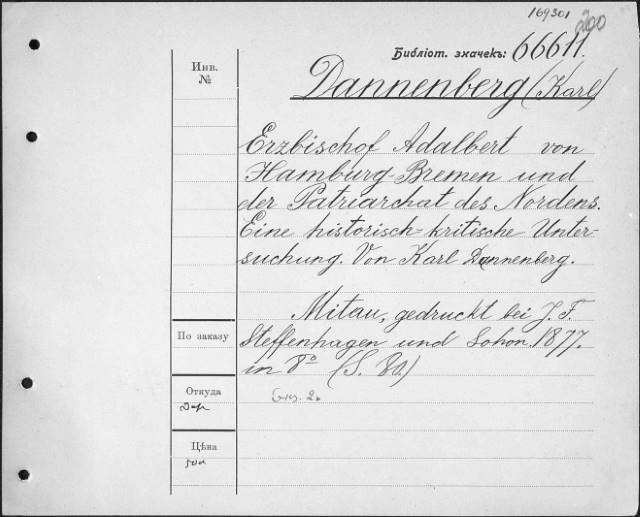 169301
200
Библіот. значекъ: 66611.
Инв.
№
Dannenberg (Karl)
Erzbischof Adalbert von
Hamburg-Bremen und
der Patriarchat des Nordens.
Eine historisch-kritische Unter-
suchung. Von Karl Dannenberg.
Mitau, gedruckt bei J. F.
По заказу
Steffenhagen und Sohn. 1877.
in 8º (S. 80.)
Откуда
Дар
Цѣна